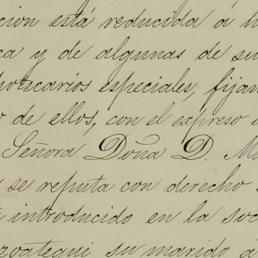 cion está reducida á l
ca y de algunas de su
potecarios especiales, fijan
o de ellos, con el expreso
Señora Doña D. M
se reputa con derecho
introducido en la soc
zoategui su marido á